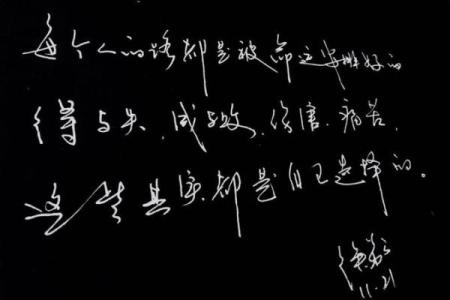 每个人的路都是被命运安排好的
得与失、成与败、伤害、痛苦、
这些其实都是自己选择的。
11.21